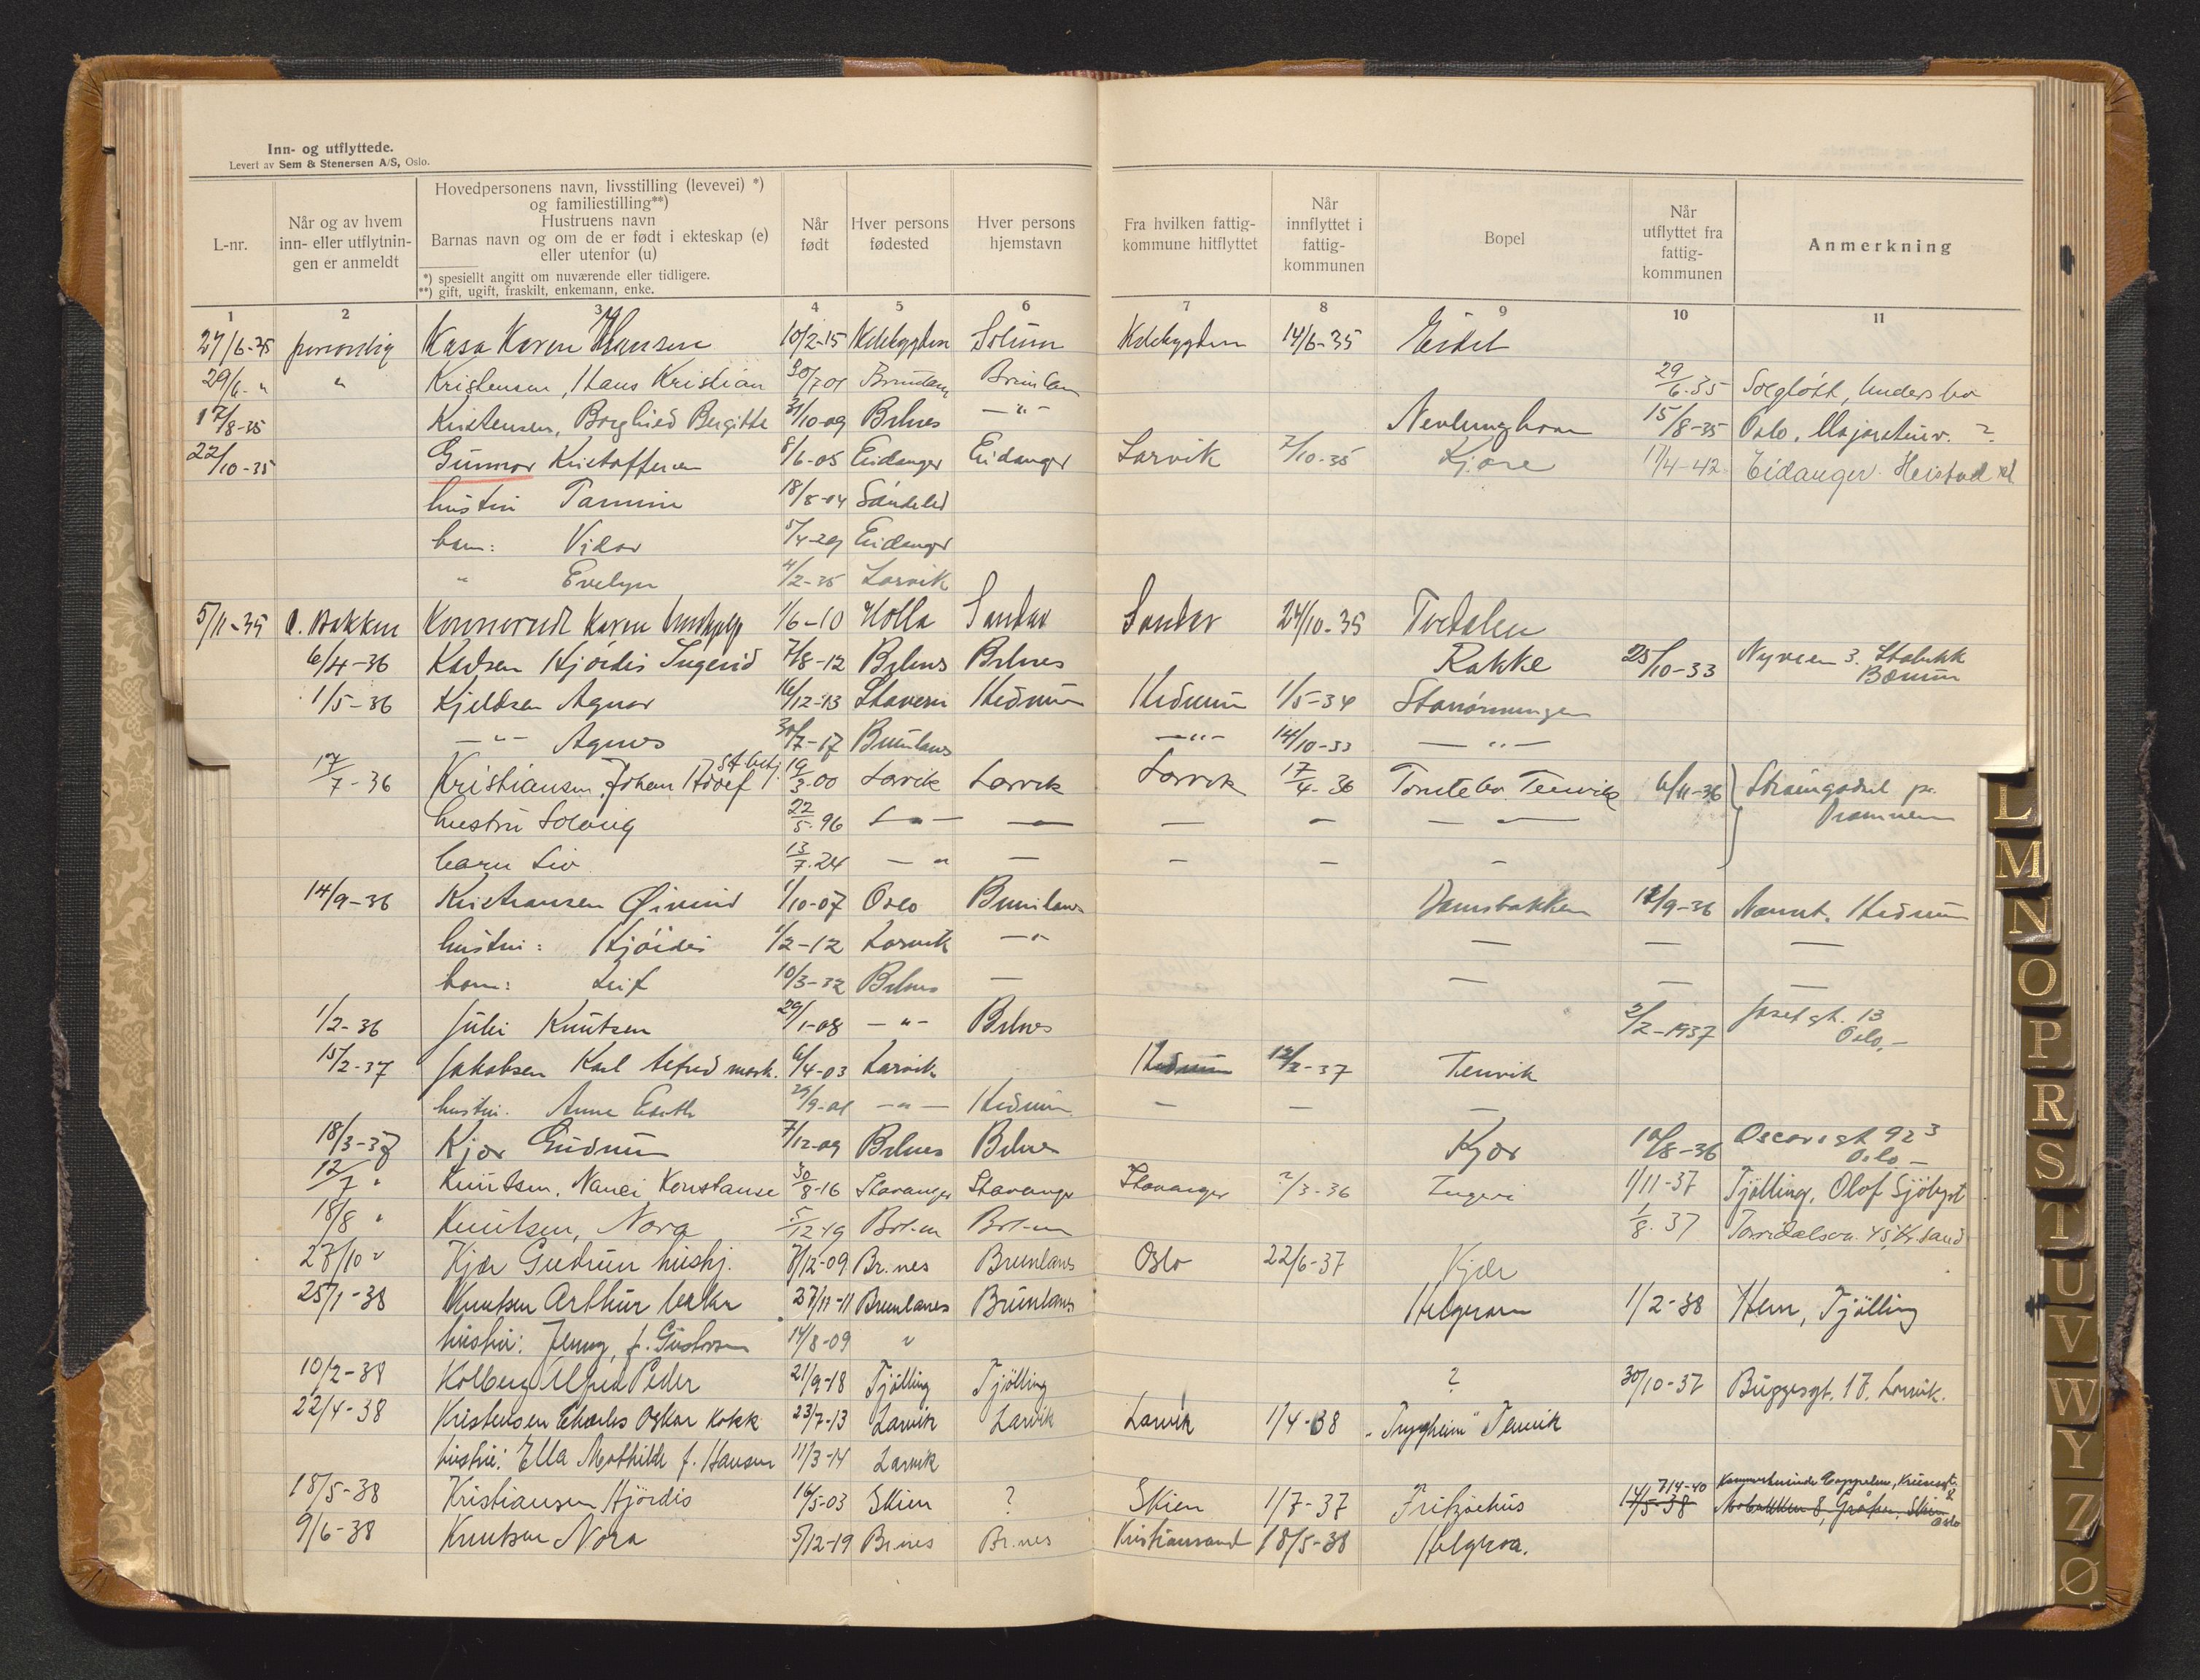 Inn- og utflyttede.
Levert av Sem & Stenersen A/S, Oslo.
L-nr.
Når og av hvem inn- eller utflytnin-gen er anmeldt
Hovedpersonens navn, livsstilling (levevei) *)
og familiestilling**)
Hustruens navn
Barnas navn og om de er født i ekteskap (e)
eller utenfor (u)
*) spesiellt angitt om nuværende eller tidligere.
**) gift, ugift, fraskilt, enkemann, enke.
Når født
Hver persons fødested
Hver persons hjemstavn
Fra hvilken fattig-kommune hitflyttet
Når innflyttet i fattig-kommunen
Bopel
Når utflyttet fra fattig-kommunen
Anmerkning
1 2 3 4 5 6 7 8 9 10 11
27/6-35 personlig Karen Hansen 10/2-15 Solum 14/6-35 Eidet
29/6- " " Kristensen, Hans Kristian 30/7 01 Brunlanes 29/6-35 Solgløtt,
17/8-35 Kristensen, Borghild Bergitte 31/10-09 Brlnes — " — Nevlunghavn 15/8-35 Oslo, Majorstuv. ?
22/10-35 Gunnar Kristoffersen 8/6-05 Eidanger Eidanger Larvik 7/10-35 Kjøse 17/4-42 Eidanger. Heistad
hustru 18/8-14 Søndeled
barn: Vidar 5/4-29 Eidanger
" Evelyn 4/2-35 Larvik
5/11-35 O. Bakken Karen hushjelp 1/6-10 Holla Sandar Sandar 24/10-35 Tvedalen
6/4-36 Karlsen Hjørdis Ingerid 7/8-12 Brlnes Brlnes Rakke 25/10-33 Nyveien 3. Stabekk
Bærum
1/5-36 Kjeldsen Agnar 16/12-13 Stavern Hedrum Hedrum 1/5-34
— " — Agnes 30/7-17 Brunlanes — " — 14/10-33 — " —
17/7-36 Kristiansen, Johan Adolf 19/3-00 Larvik Larvik Larvik 17/4-36 Tenvik 6/11-36 pr.
Drammen
hustru Solveig 22/5-96 — " — — — — — —
barn Liv 13/7-24 — " — — — —
14/9-36 Kristiansen Øivind 1/10-07 Oslo Brunlanes Damsbakken 12/9-36 Hedrum
hustru: Hjördis 1/2-12 Larvik — " — — —
barn: Leif 10/3-32 Brlnes — — — —
1/2-36 Juli Knutsen 29/1-08 — " — Brlnes 2/2-1937 Josefgt. 13
Oslo.-
15/2-37 Jakobsen Karl Alfred mask. 6/4-03 Larvik Hedrum 12/2-37 Tenvik
hustru. Anne Edith 29/9-01 — " — Hedrum — — —
18/3-37 Kjær Gudrun 7/12-09 Brlnes Brlnes Kjær 10/8-36 Oscarsgt 92 3
Oslo —
12/7 " Knutsen, Nanci Konstanse 30/8-16 Stavanger Stavanger Stavanger 2/3-36 1/11-37 Tjölling, Olof
18/8 " Knutsen, Nora 5/12-19 Brl-n Brl-n 1/8-37 45, Kr.sand
27/10 " Kjær Gudrun hushj. 7/12-09 Br.nes Brunlanes Oslo 22/6-37 Kjær
25/1-38 Knutsen Arthur 27/11-11 Brunlanes Brunlanes Helgeroa 1/2-38 Hem, Tjölling
hustru: Jenny, f. Gustavsen 14/8-09 "
10/2-38 Kolberg Alfred Peder 21/9-18 Tjölling Tjölling ? 30/10-37 Buggesgt. 18. Larvik.
22/4-38 Kristensen Charles Oskar kokk 23/7-13 Larvik Larvik Larvik 1/4-38 "Trygheim" Tenvik
hustru: Ella Mathilde f. Hansen 11/3-14 Larvik
18/5-38 Kristiansen Hjördis 16/5-03 Skien ? Skien 1/7-37 Fritzøehus 14/5-38 7/4-40 Gråten, Skien
Oslo
9/6-38 Knutsen Nora 5/12-19 Br.nes Br.nes Kristiansand 18/5-38 Helgeroa.
L
M
N
O
P
R
S
T
U
V
W
Y
Z
Ø